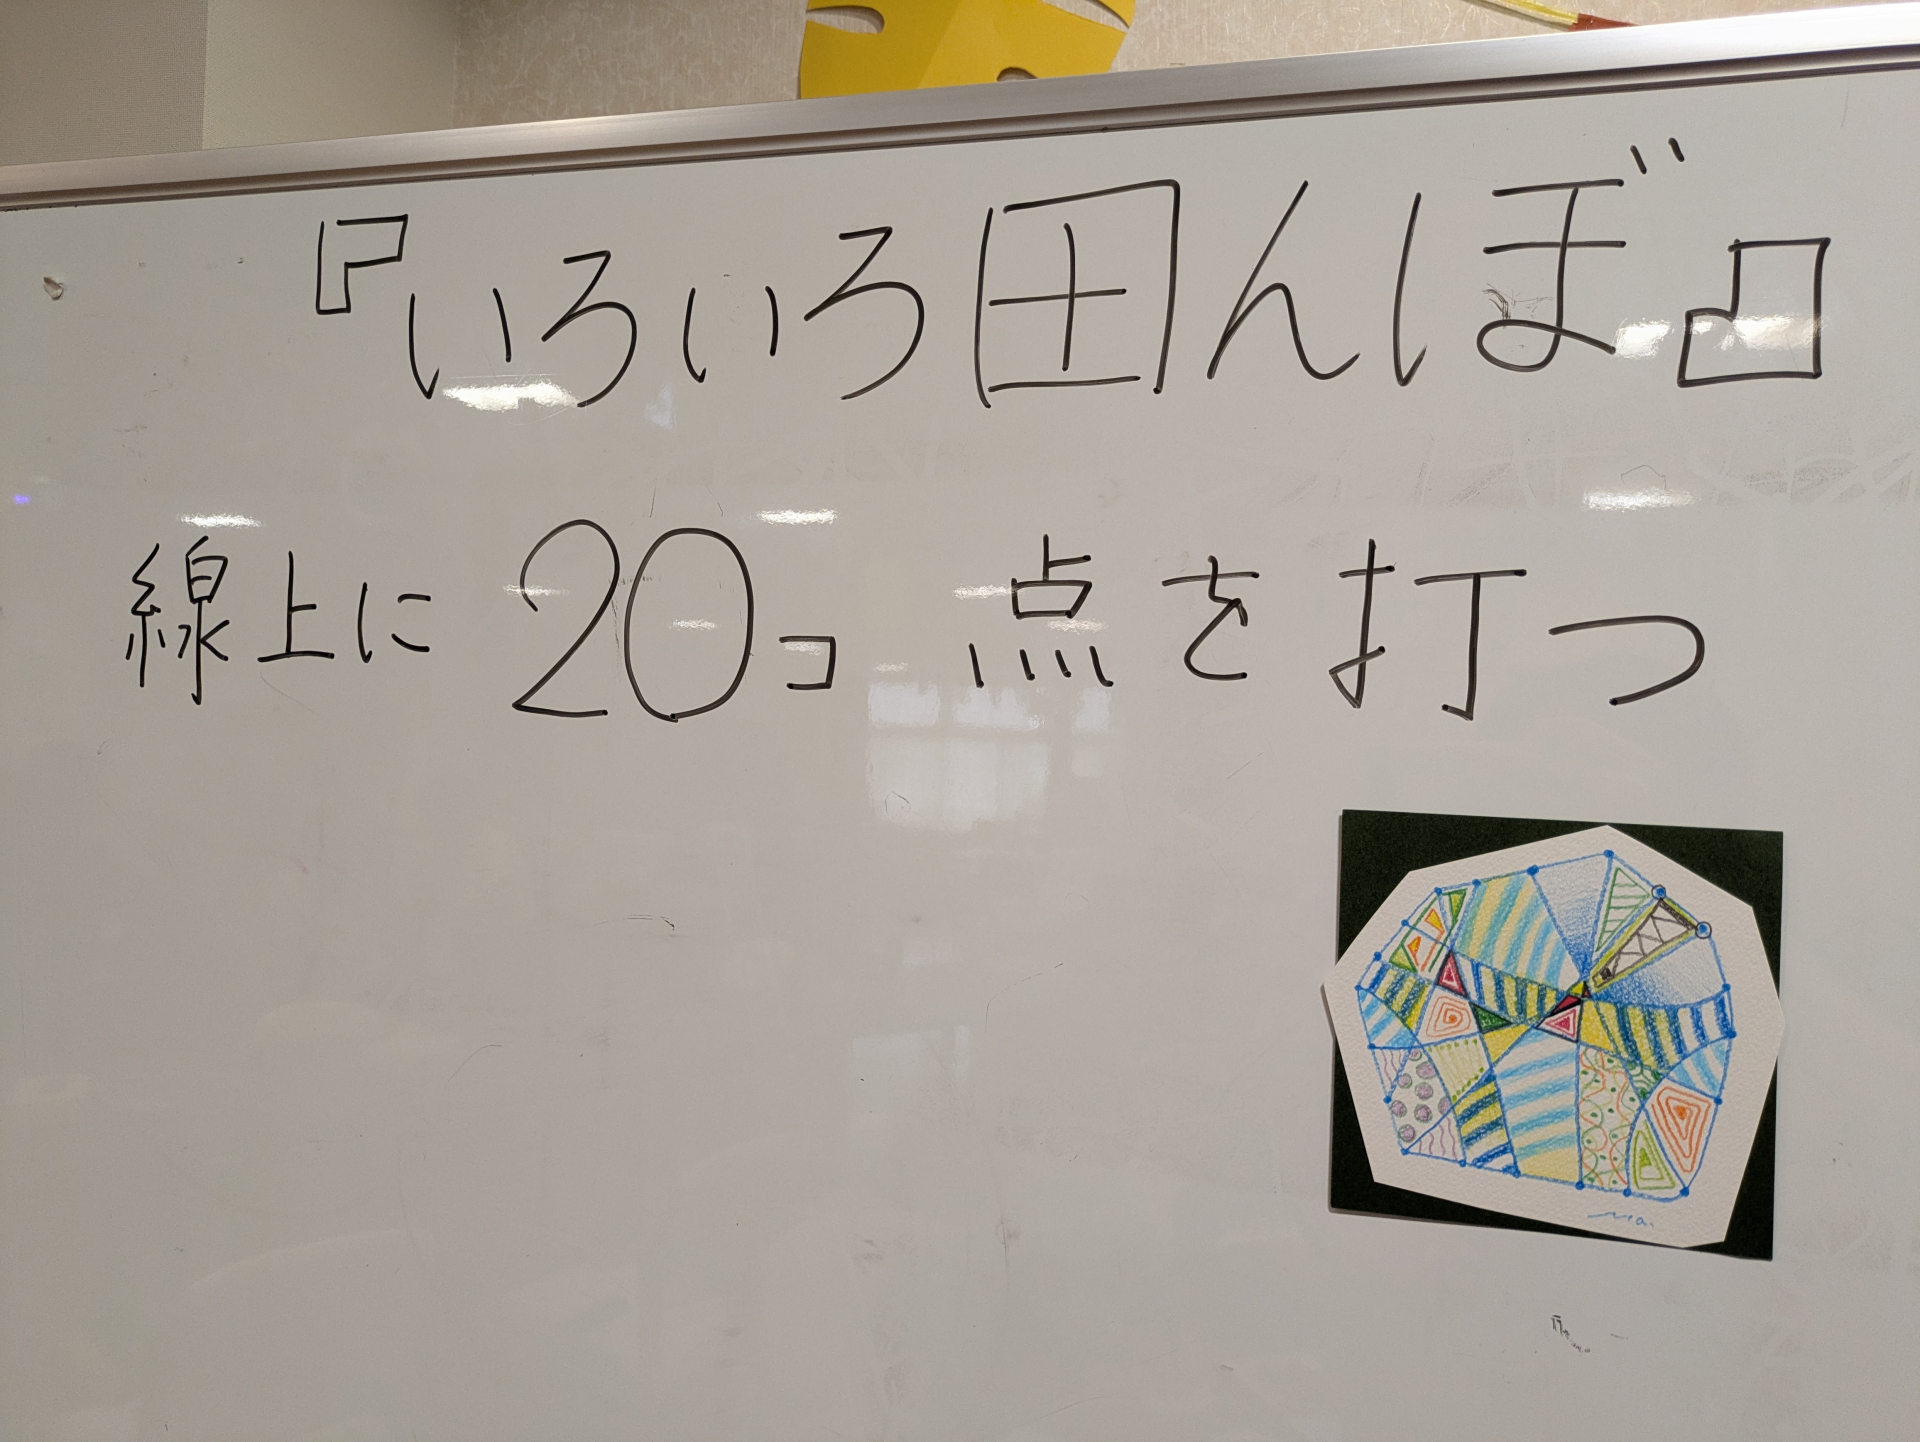 『いろいろ田んぼ』
線上に 20コ 点を打つ